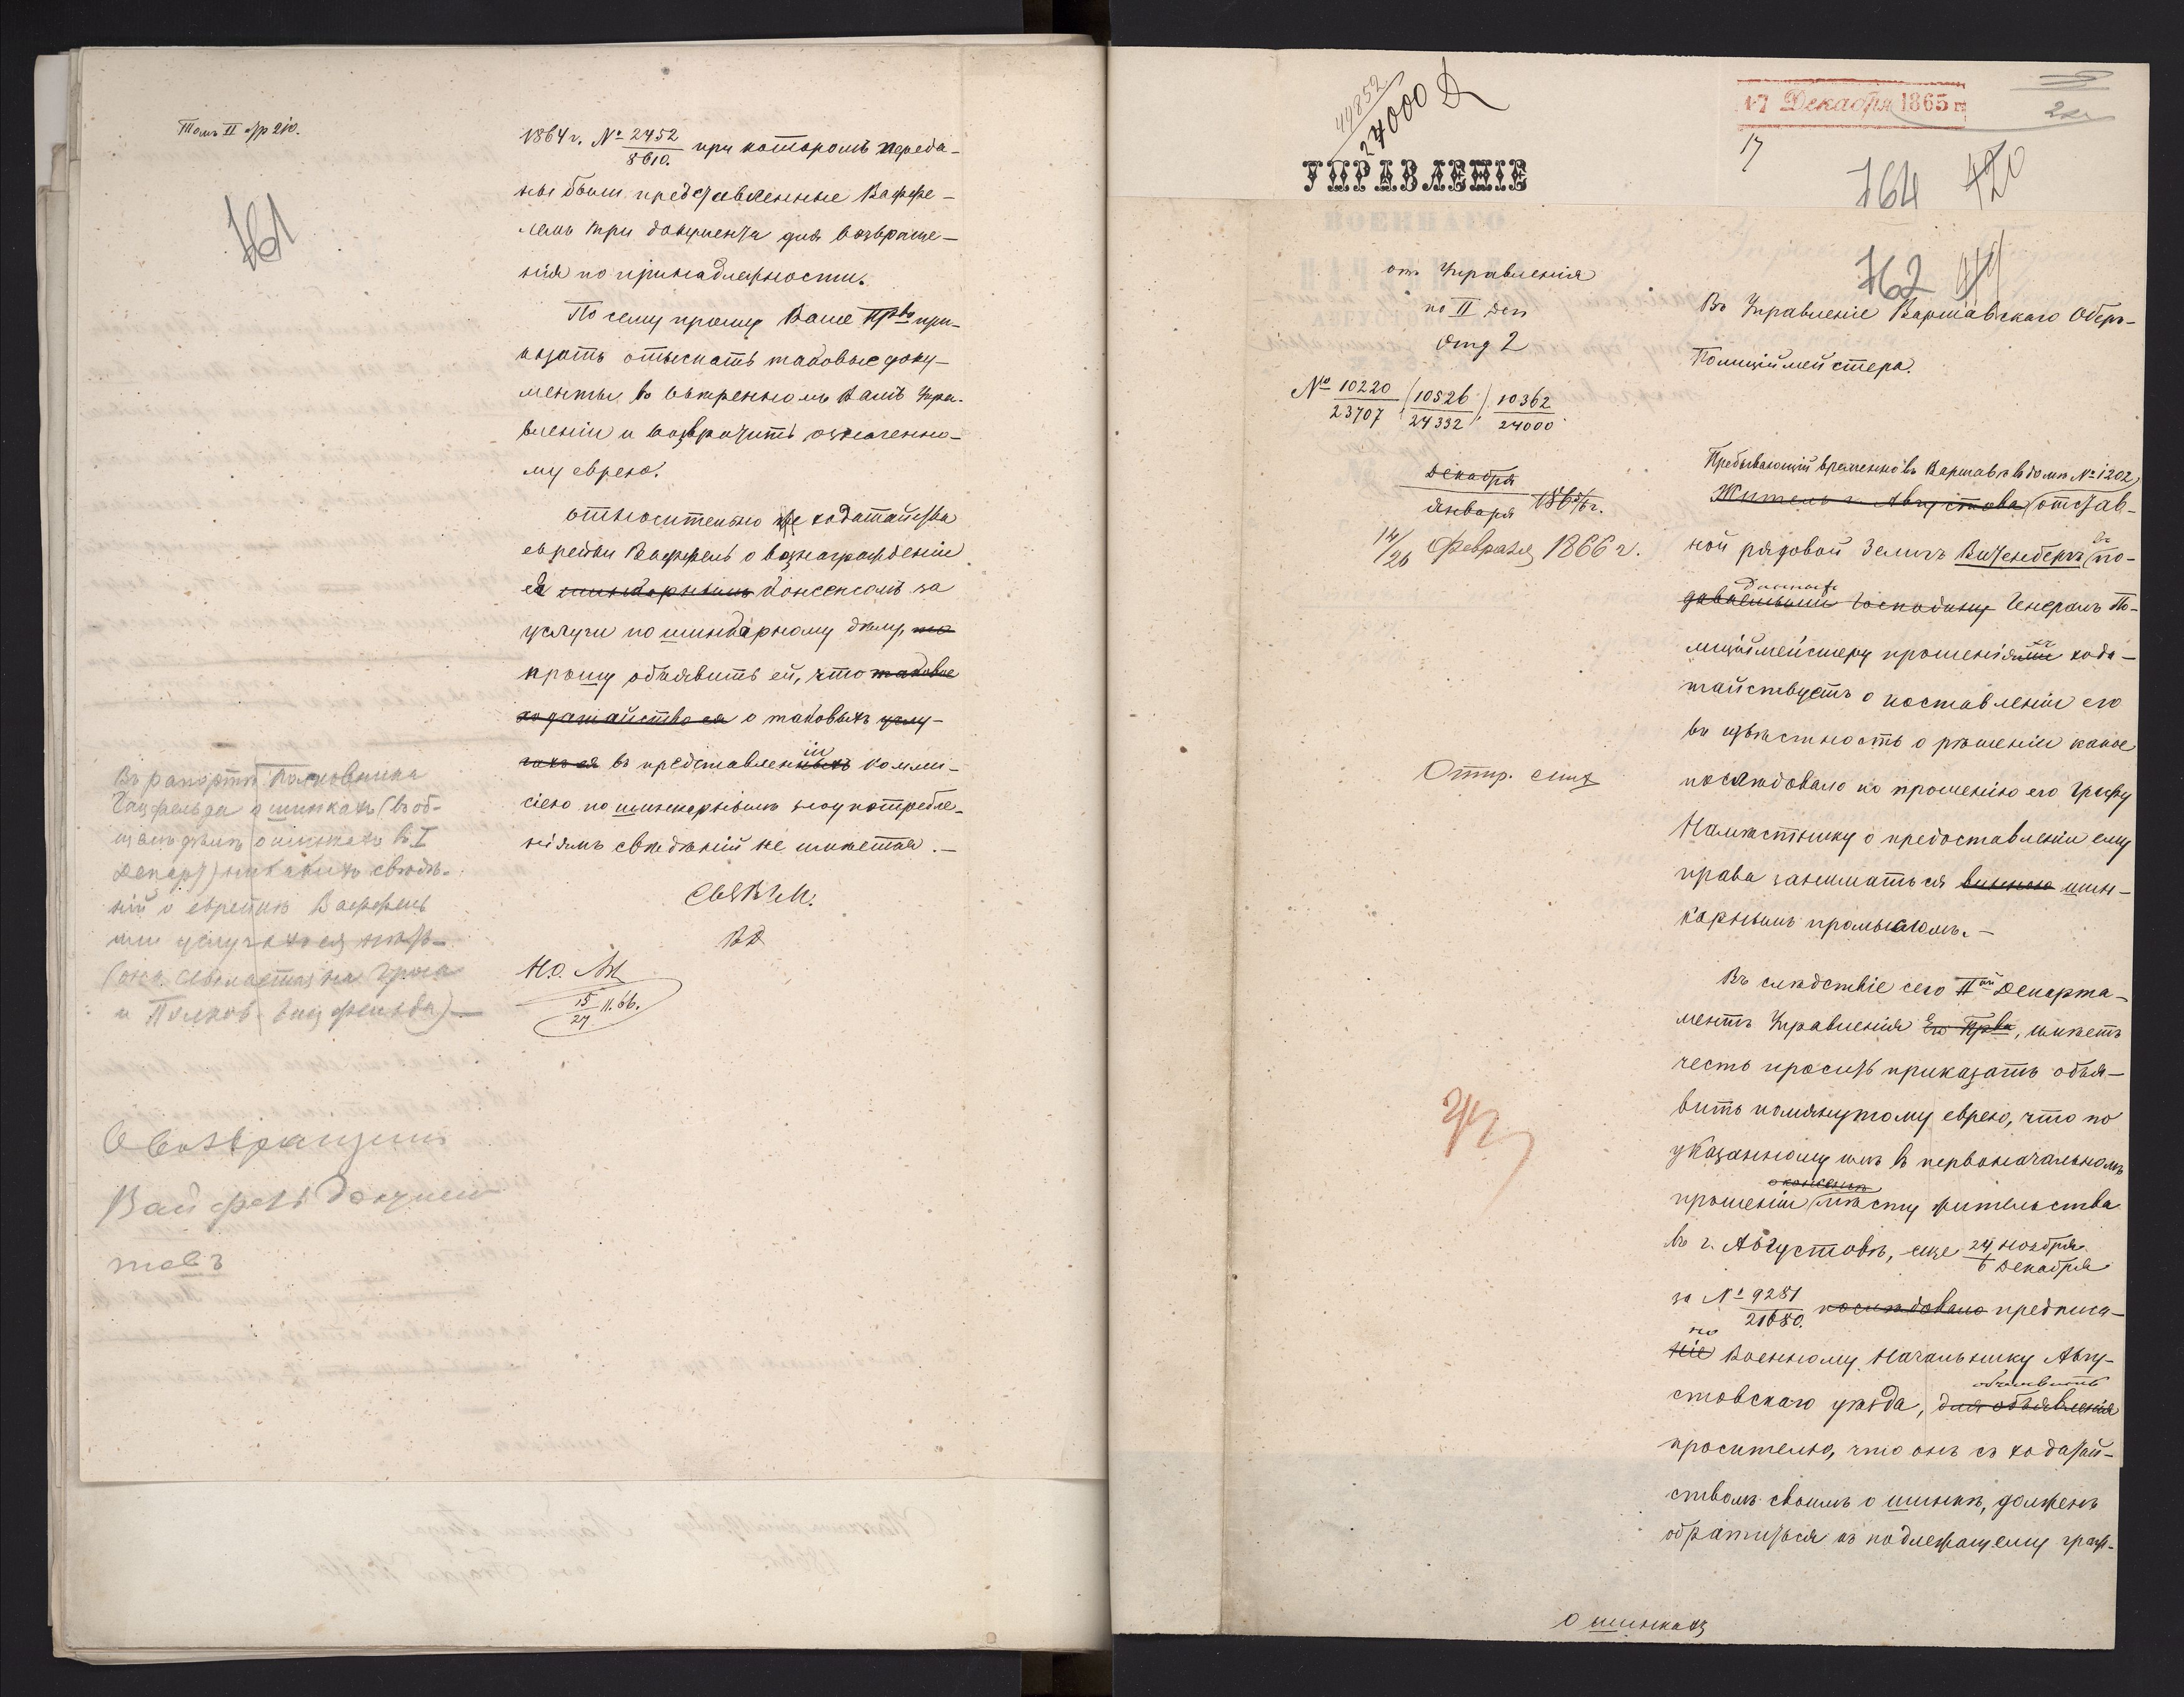 Томъ II стр 210.
761
1864 г. № 2452/8610. при которомъ переда-
ны были представленные Ваффе-
лемъ три документа для возвраще-
нія по принадлежности.
По сему прошу Ваше Прво при-
казать отыскать таковые доку-
менты во ввѣренномъ Вамъ Упра-
вленіи и возвратить означенно-
му еврею.
Относительно же ходатайства
еврейки Ваффель о вознагражденіи
ея шинкарнымъ консенсомъ за
услуги по шинкарному дѣлу, то
прошу объявить ей, что таковое
ходатайство ея о таковыхъ услу-
гахъ ея въ представленныхъ іи Комми-
сіею по шинкарнымъ злоупотребле-
ніямъ свѣдѣній не имѣется.—
Въ рапортѣ Полковника
о шинкахъ (въ об-
щемъ дѣлѣ о шинкахъ въ I
Депар) никакихъ свѣдѣ-
ній о еврейкѣ Ваффель
или услугахъ ея нѣтъ
(она ссылается на
и Полков.
15/27 II. 66.
О возвращеніи
Вайфель докумен
товъ
44852
24000
УПРАВЛЕНІЕ
17 Декабря 1865 г.
17
764 420
762
отъ Управленія
по II Деп
Отд 2
№ 10220/23707 (10526/24332), 10362/24000.
Декабря
Января 1865/6 г.
14/26 Февраля 1866 г.
Въ Управленіе Варшавскаго Оберъ-
Полиціймейстера.
Пребывающій временно въ Варшавѣ въ домѣ № 1202
Житель г. Августова отстав-
ной рядовой Зелигъ Витенбергъ по-
даваемыми Господину Генералъ По-
лиціймейстеру прошеніями хода-
тайствуетъ о поставленіи его
въ извѣстность о рѣшеніи какое
послѣдовало по прошенію его Графу
Намѣстнику о предоставленіи ему
права заниматься виннымъ шин-
карнымъ промысломъ.—
Въ слѣдствіе сего IIой Департа-
ментъ Управленія Его Прва, имѣетъ
честь просить приказать объя-
вить помянутому еврею, что по
указанному имъ въ первоначальномъ
прошеніи мѣсту жительства
въ г. Августовѣ, еще 24 Ноября/6 Декабря
за № 9281/21680. послѣдовало предписа-
но
ніе Военному Начальнику Авгу-
объявить
стовскаго уѣзда, для объявленія
просителю, что онъ съ ходатай-
ствомъ своимъ о шинкѣ, долженъ
обратиться къ подлежащему граж-
Отпр.
О шинкахъ